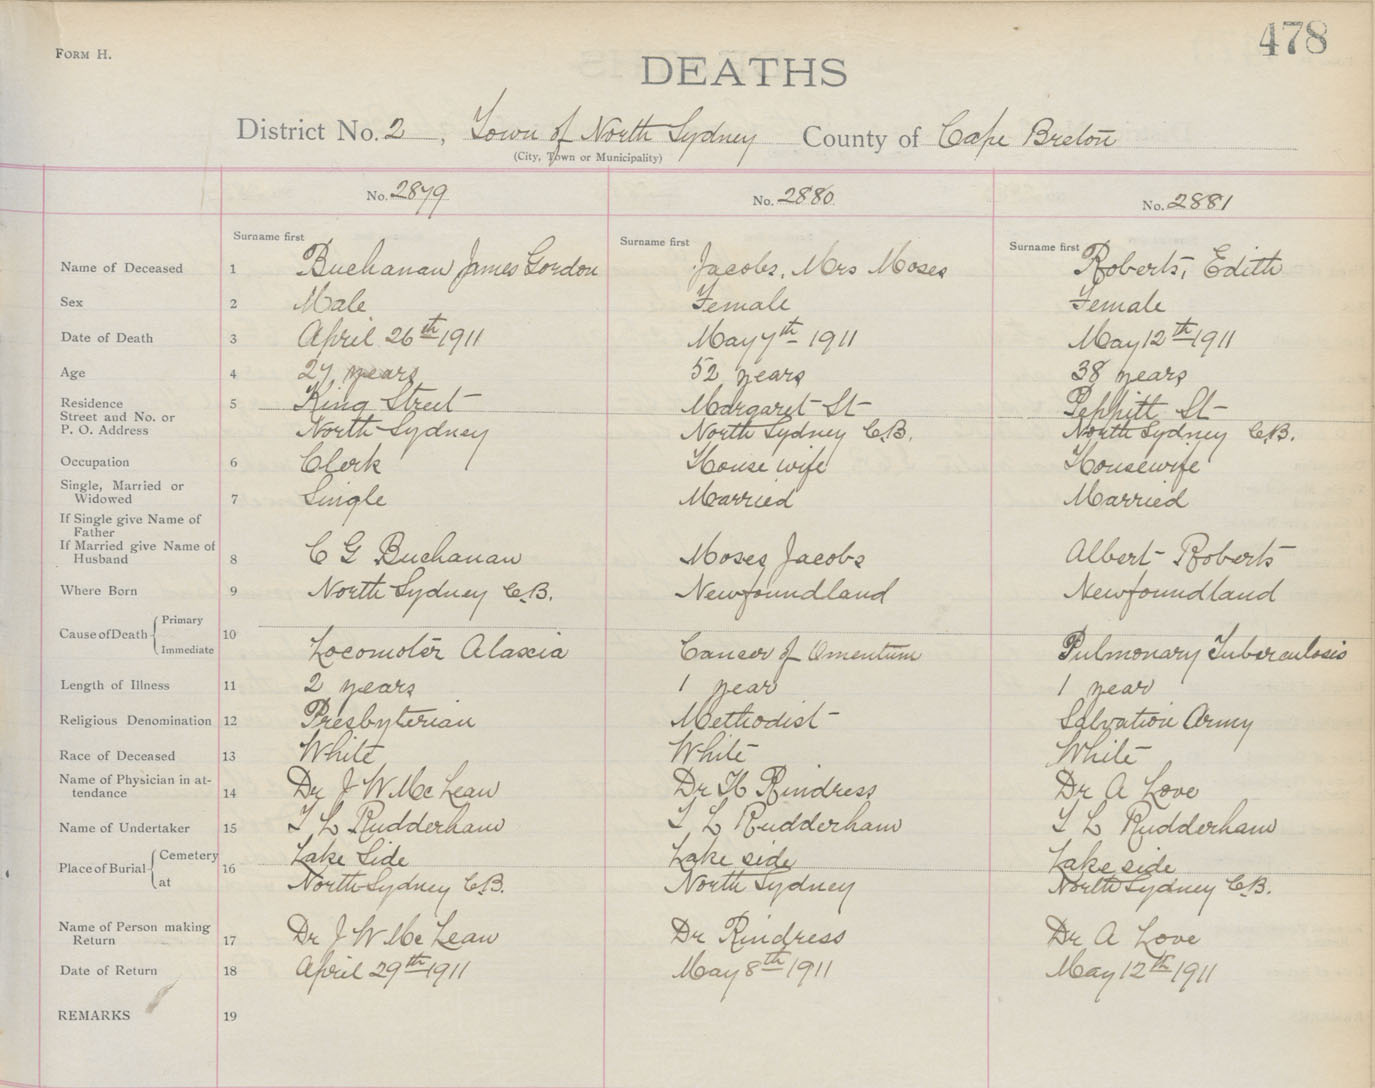 478
FORM H.
DEATHS
District No. 2, Town of North Sydney County of Cape Breton
(City, Town or Municipality)
No. 2879 No. 2880 No. 2881
Surname first Surname first Surname first
Name of Deceased 1 Buchanan James Gordon Jacobs, Mrs Moses Roberts, Edith
Sex 2 Male Female Female
Date of Death 3 April 26th 1911 May 7th 1911 May 12th 1911
Age 4 27 years 52 years 38 years
Residence 5 King Street Margaret St Peppitt St
Street and No. or
P. O. Address North Sydney North Sydney C.B. North Sydney C.B.
Occupation 6 Clerk House wife Housewife
Single, Married or
Widowed 7 Single Married Married
If Single give Name of
Father
If Married give Name of
Husband 8 C G Buchanan Moses Jacobs Albert Roberts
Where Born 9 North Sydney C.B. Newfoundland Newfoundland
Cause of Death Primary
Immediate 10 Locomoter Ataxia Cancer of Omentum Pulmonary Tuberculosis
Length of Illness 11 2 years 1 year 1 year
Religious Denomination 12 Presbyterian Methodist Salvation Army
Race of Deceased 13 White White White
Name of Physician in at-
tendance 14 Dr J W McLean Dr H Rindress Dr A Love
Name of Undertaker 15 T L Rudderham T L Rudderham T L Rudderham
Place of Burial Cemetery 16 Lake Side Lake side Lake side
at North Sydney C.B. North Sydney North Sydney C.B.
Name of Person making
Return 17 Dr J W McLean Dr Rindress Dr A Love
Date of Return 18 April 29th 1911 May 8th 1911 May 12th 1911
REMARKS 19